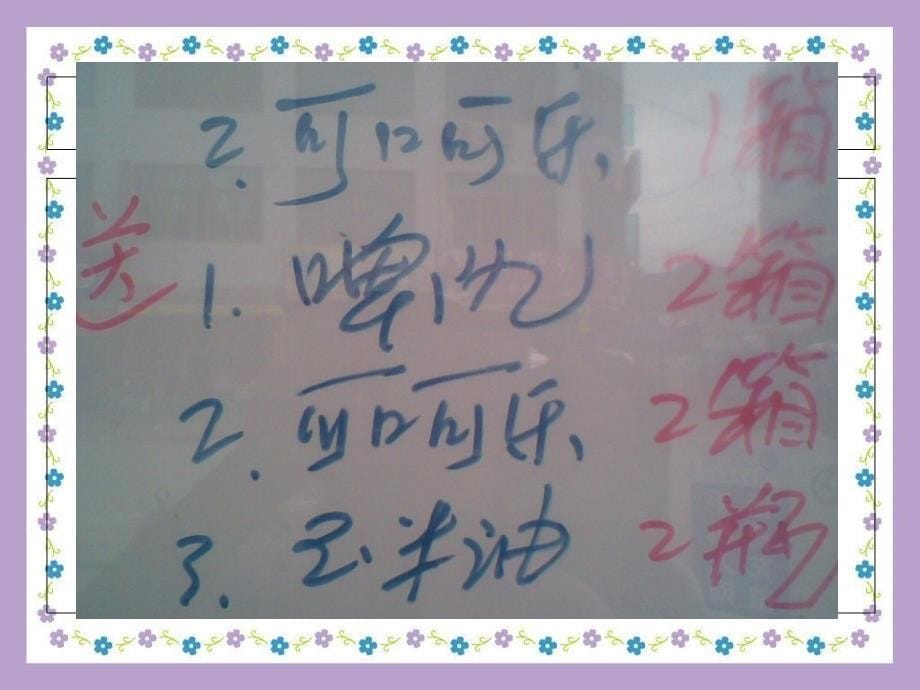 2. 可口可乐 1箱
送 1. 啤氿 2箱
2. 可口可乐 2箱
3. 玉米油 2瓶